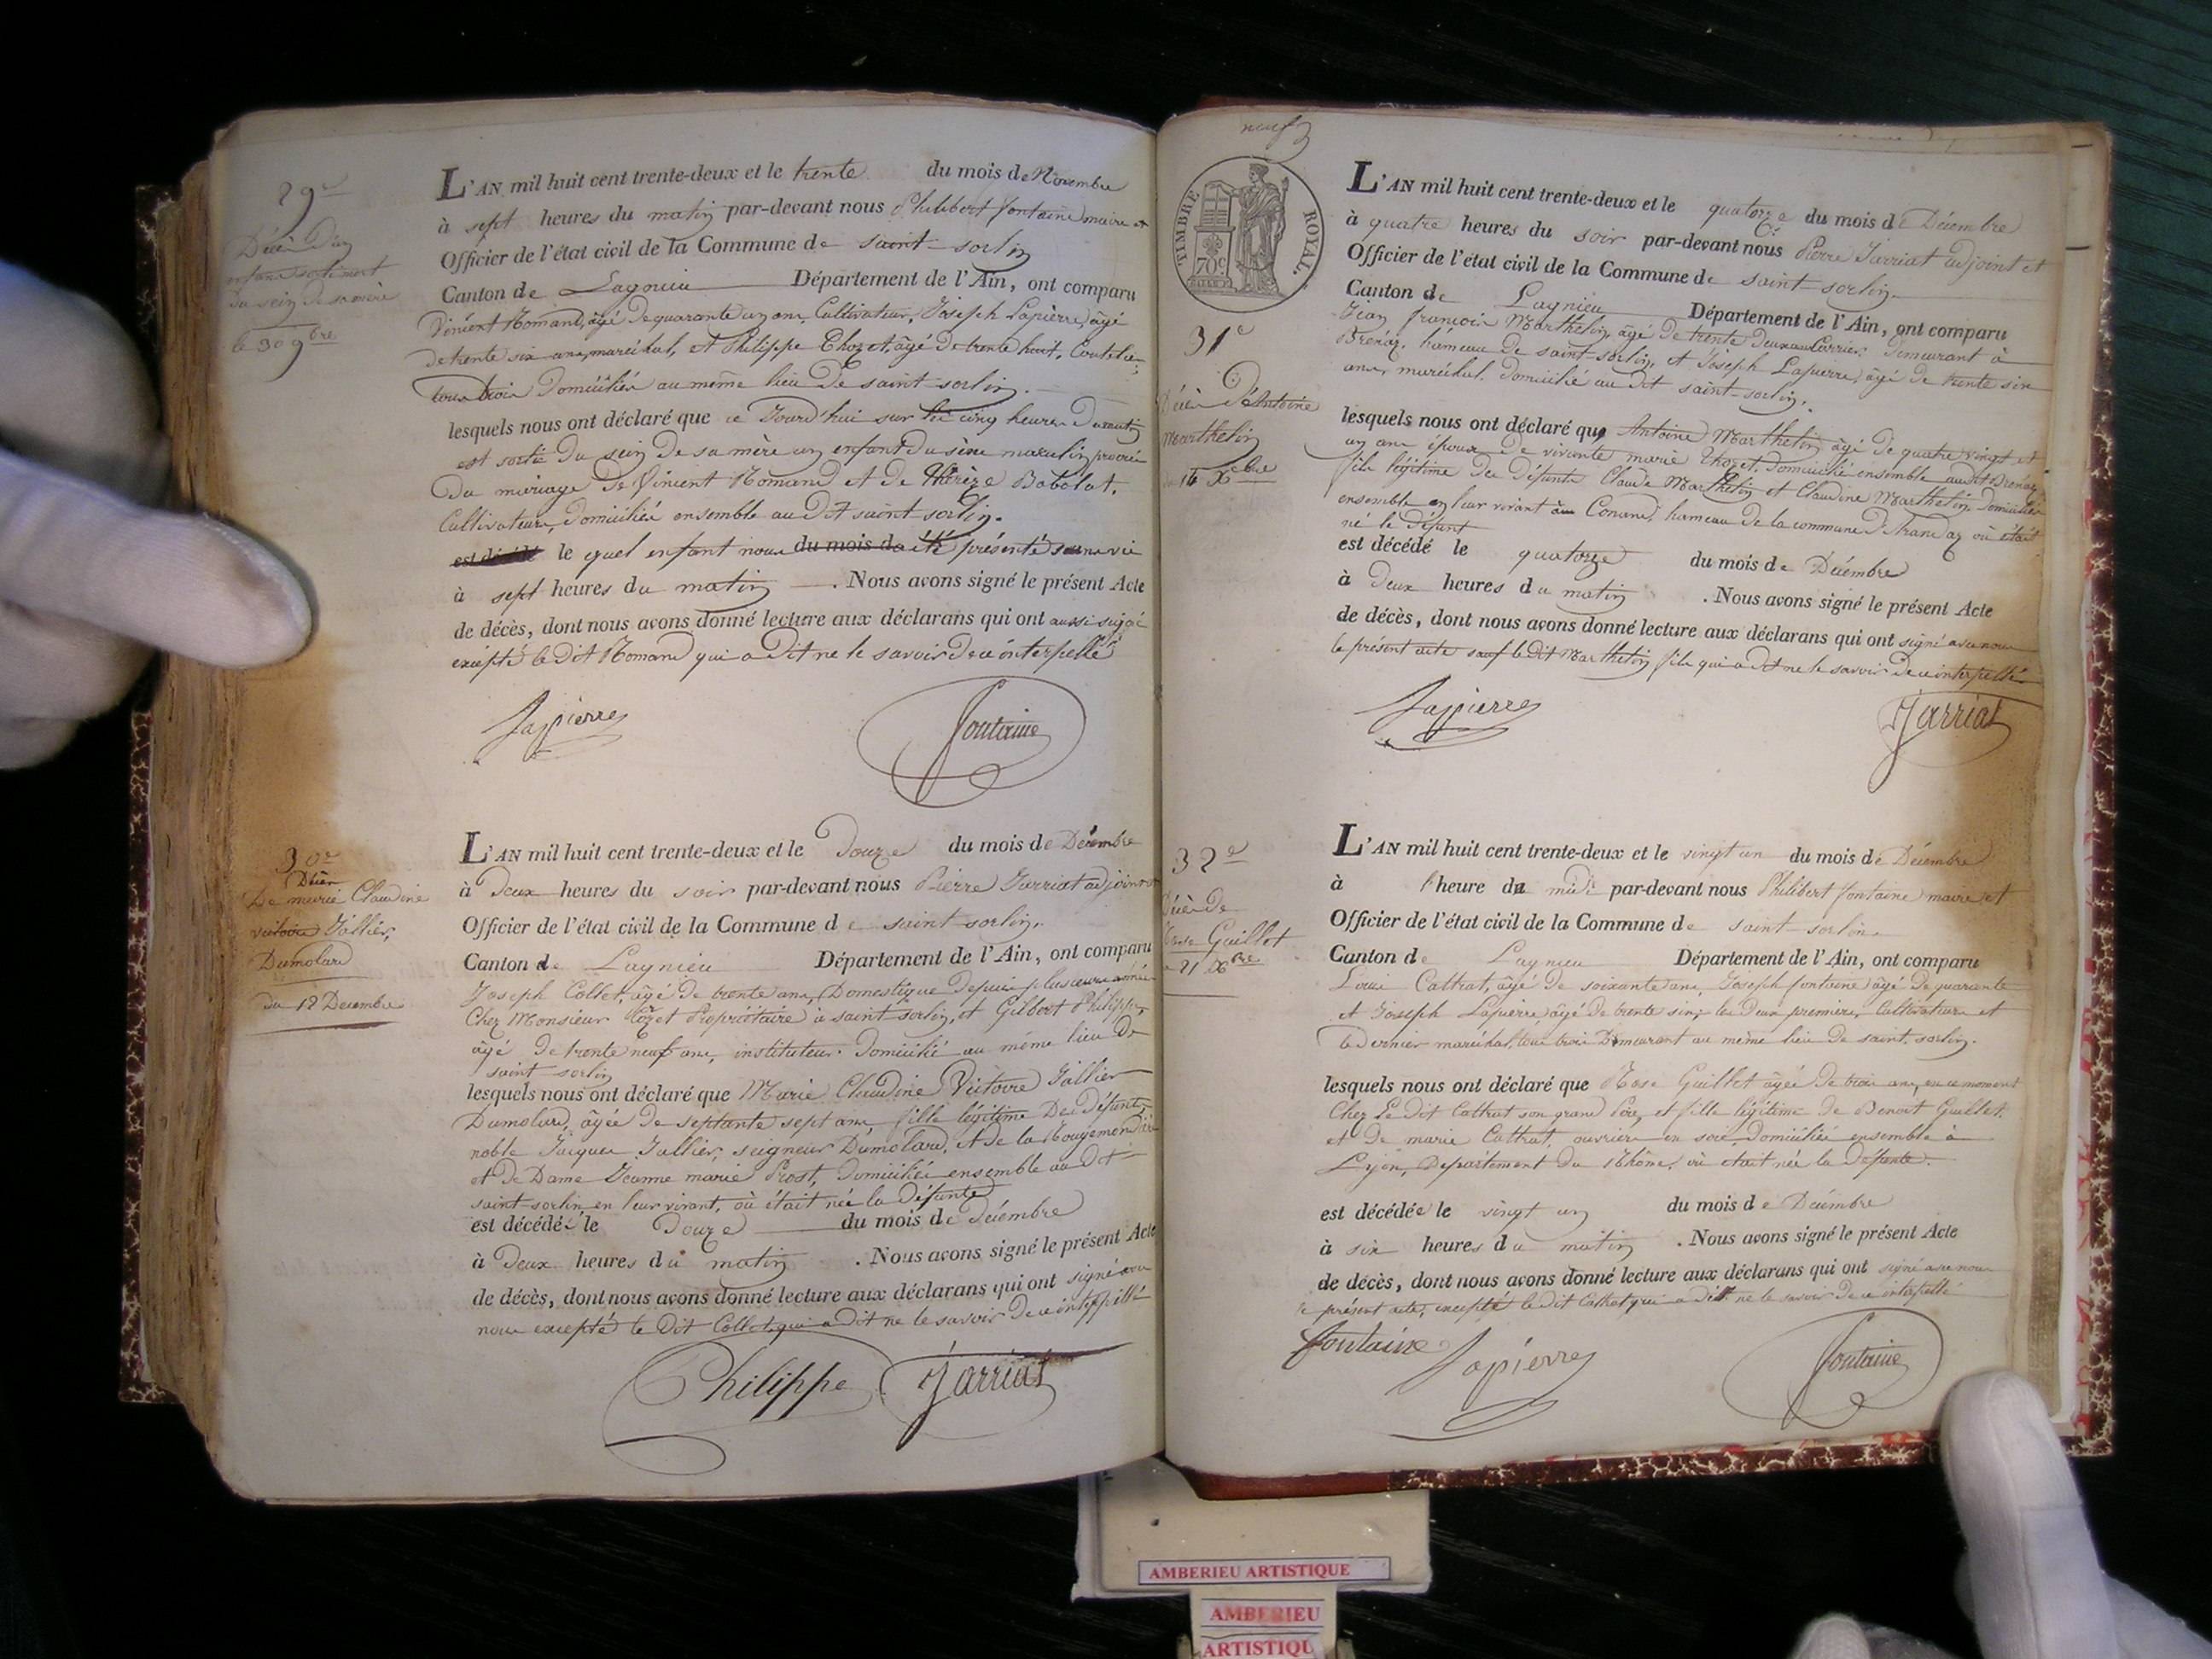 29e
Décès d'un
enfant sorti mort
du sein de sa mère
le 30 9bre
L'AN mil huit cent trente-deux et le trente du mois de Novembre
à sept heures du matin par-devant nous Philibert fontaine maire et
Officier de l'état civil de la Commune de saint-sorlin
Canton de Lagnieu Département de l'Ain, ont comparu
Vincent Romand, âgé de quarante un ans, Cultivateur, Joseph Lapierre, âgé
de trente six ans, maréchal, et Philippe Thozet, âgé de trente huit,
tous trois domiciliés au même lieu de saint-sorlin.
lesquels nous ont déclaré que ce Jourd'hui sur les cinq heures du matin
est sortie du sein de sa mère un enfant du sèxe masculin procréé
du mariage de Vincent Romand et de Thérèze Babolat,
Cultivateurs, domiciliés ensemble au dit saint-sorlin.
est décédé le quel enfant nous du mois de été présenté sans vie
à sept heures du matin. Nous avons signé le présent Acte
de décès, dont nous avons donné lecture aux déclarans qui ont aussi signé
excépté le dit Romand qui a dit ne le savoir de ce interpellé
Lapierre fontaine
30e
Décès
De marie Claudine
victoire Jallier,
Dumolard
du 12 Decembre
L'AN mil huit cent trente-deux et le Douze du mois de Décembre
à Deux heures du soir par-devant nous Pierre Jarriat adjoint et
Officier de l'état civil de la Commune de saint-sorlin.
Canton de Lagnieu Département de l'Ain, ont comparu
Joseph Collet, âgé de trente ans, Domestique depuis plusieurs années
Chez Monsieur Propriétaire à saint-sorlin, et Gilbert Philippe,
âgé de trente neuf ans, instituteur domicilié au même lieu de
saint sorlin
lesquels nous ont déclaré que Marie Claudine Victoire Jallier
Dumolard, âgée de septante sept ans fille légitime des défunts
noble Jacques Jallier, seigneur Dumolard, et de la
et de Dame Jeanne marie Prost, domiciliés ensemble au dit
saint-sorlin en leur vivant, où était née la défunte
est décédée le Douze du mois de Décembre
à Deux heures du matin. Nous avons signé le présent Acte
de décès, dont nous avons donné lecture aux déclarans qui ont signé avec
nous excepté le dit Collet qui a dit ne le savoir de ce interpellé
Philippe Jarriat
neuf
TIMBRE ROYAL.
70c
31e
Décès d'Antoine
Marthelin
du 14 Xbre
L'AN mil huit cent trente-deux et le quatorze du mois de Décembre
à quatre heures du soir par-devant nous Pierre Jarriat adjoint et
Officier de l'état civil de la Commune de saint-sorlin
Canton de Lagnieu Département de l'Ain, ont comparu
Jean françois Marthelin, âgé de trente deux ans demeurant à
Brénaz, hameau de saint-sorlin, et Joseph Lapierre, âgé de trente six
ans, maréchal, domicilié au dit saint-sorlin.
lesquels nous ont déclaré que Antoine Marthelin âgé de quatre vingt et
un ans époux de vivante marie Thozet, domiciliés ensemble au dit Brenaz
fils légitime des défunts Claude Marthelin et Claudine Marthelin domiciliés
ensemble en leur vivant à Conand, hameau de la commune d'Arandaz où était
né le défunt
est décédé le quatorze du mois de Décembre
à Deux heures du matin. Nous avons signé le présent Acte
de décès, dont nous avons donné lecture aux déclarans qui ont signé avec nous
le présent acte sauf le dit Marthelin fils qui a dit ne le savoir de ce interpellé
Lapierre Jarriat
32e
Décès de
Rose Guillet
21 Xbre
L'AN mil huit cent trente-deux et le vingt un du mois de Décembre
à l'heure de midi par-devant nous Philibert fontaine maire et
Officier de l'état civil de la Commune de saint-sorlin.
Canton de Lagnieu Département de l'Ain, ont comparu
Louis Cattrat, âgé de soixante ans, Joseph fontaine âgé de quarante
et Joseph Lapierre âgé de trente six; les deux premiers, Cultivateurs et
le dernier maréchal, tous trois Demeurant au même lieu de saint-sorlin.
lesquels nous ont déclaré que Rose Guillet âgée de trois ans, en ce moment
chez le dit Cattrat son grand Père, et fille légitime de Benoit Guillet,
et de marie Cattrat, ouvriers en soie, domiciliés ensemble à
Lyon, Département du Rhône, où était née la défunte.
est décédée le vingt un du mois de Décembre
à six heures du matin. Nous avons signé le présent Acte
de décès, dont nous avons donné lecture aux déclarans qui ont signé avec nous
le présent acte, excepté le dit Cattrat qui a dit ne le savoir de ce interpellé
fontaine Lapierre fontaine
AMBERIEU ARTISTIQUE
AMBERIEU
ARTISTIQU